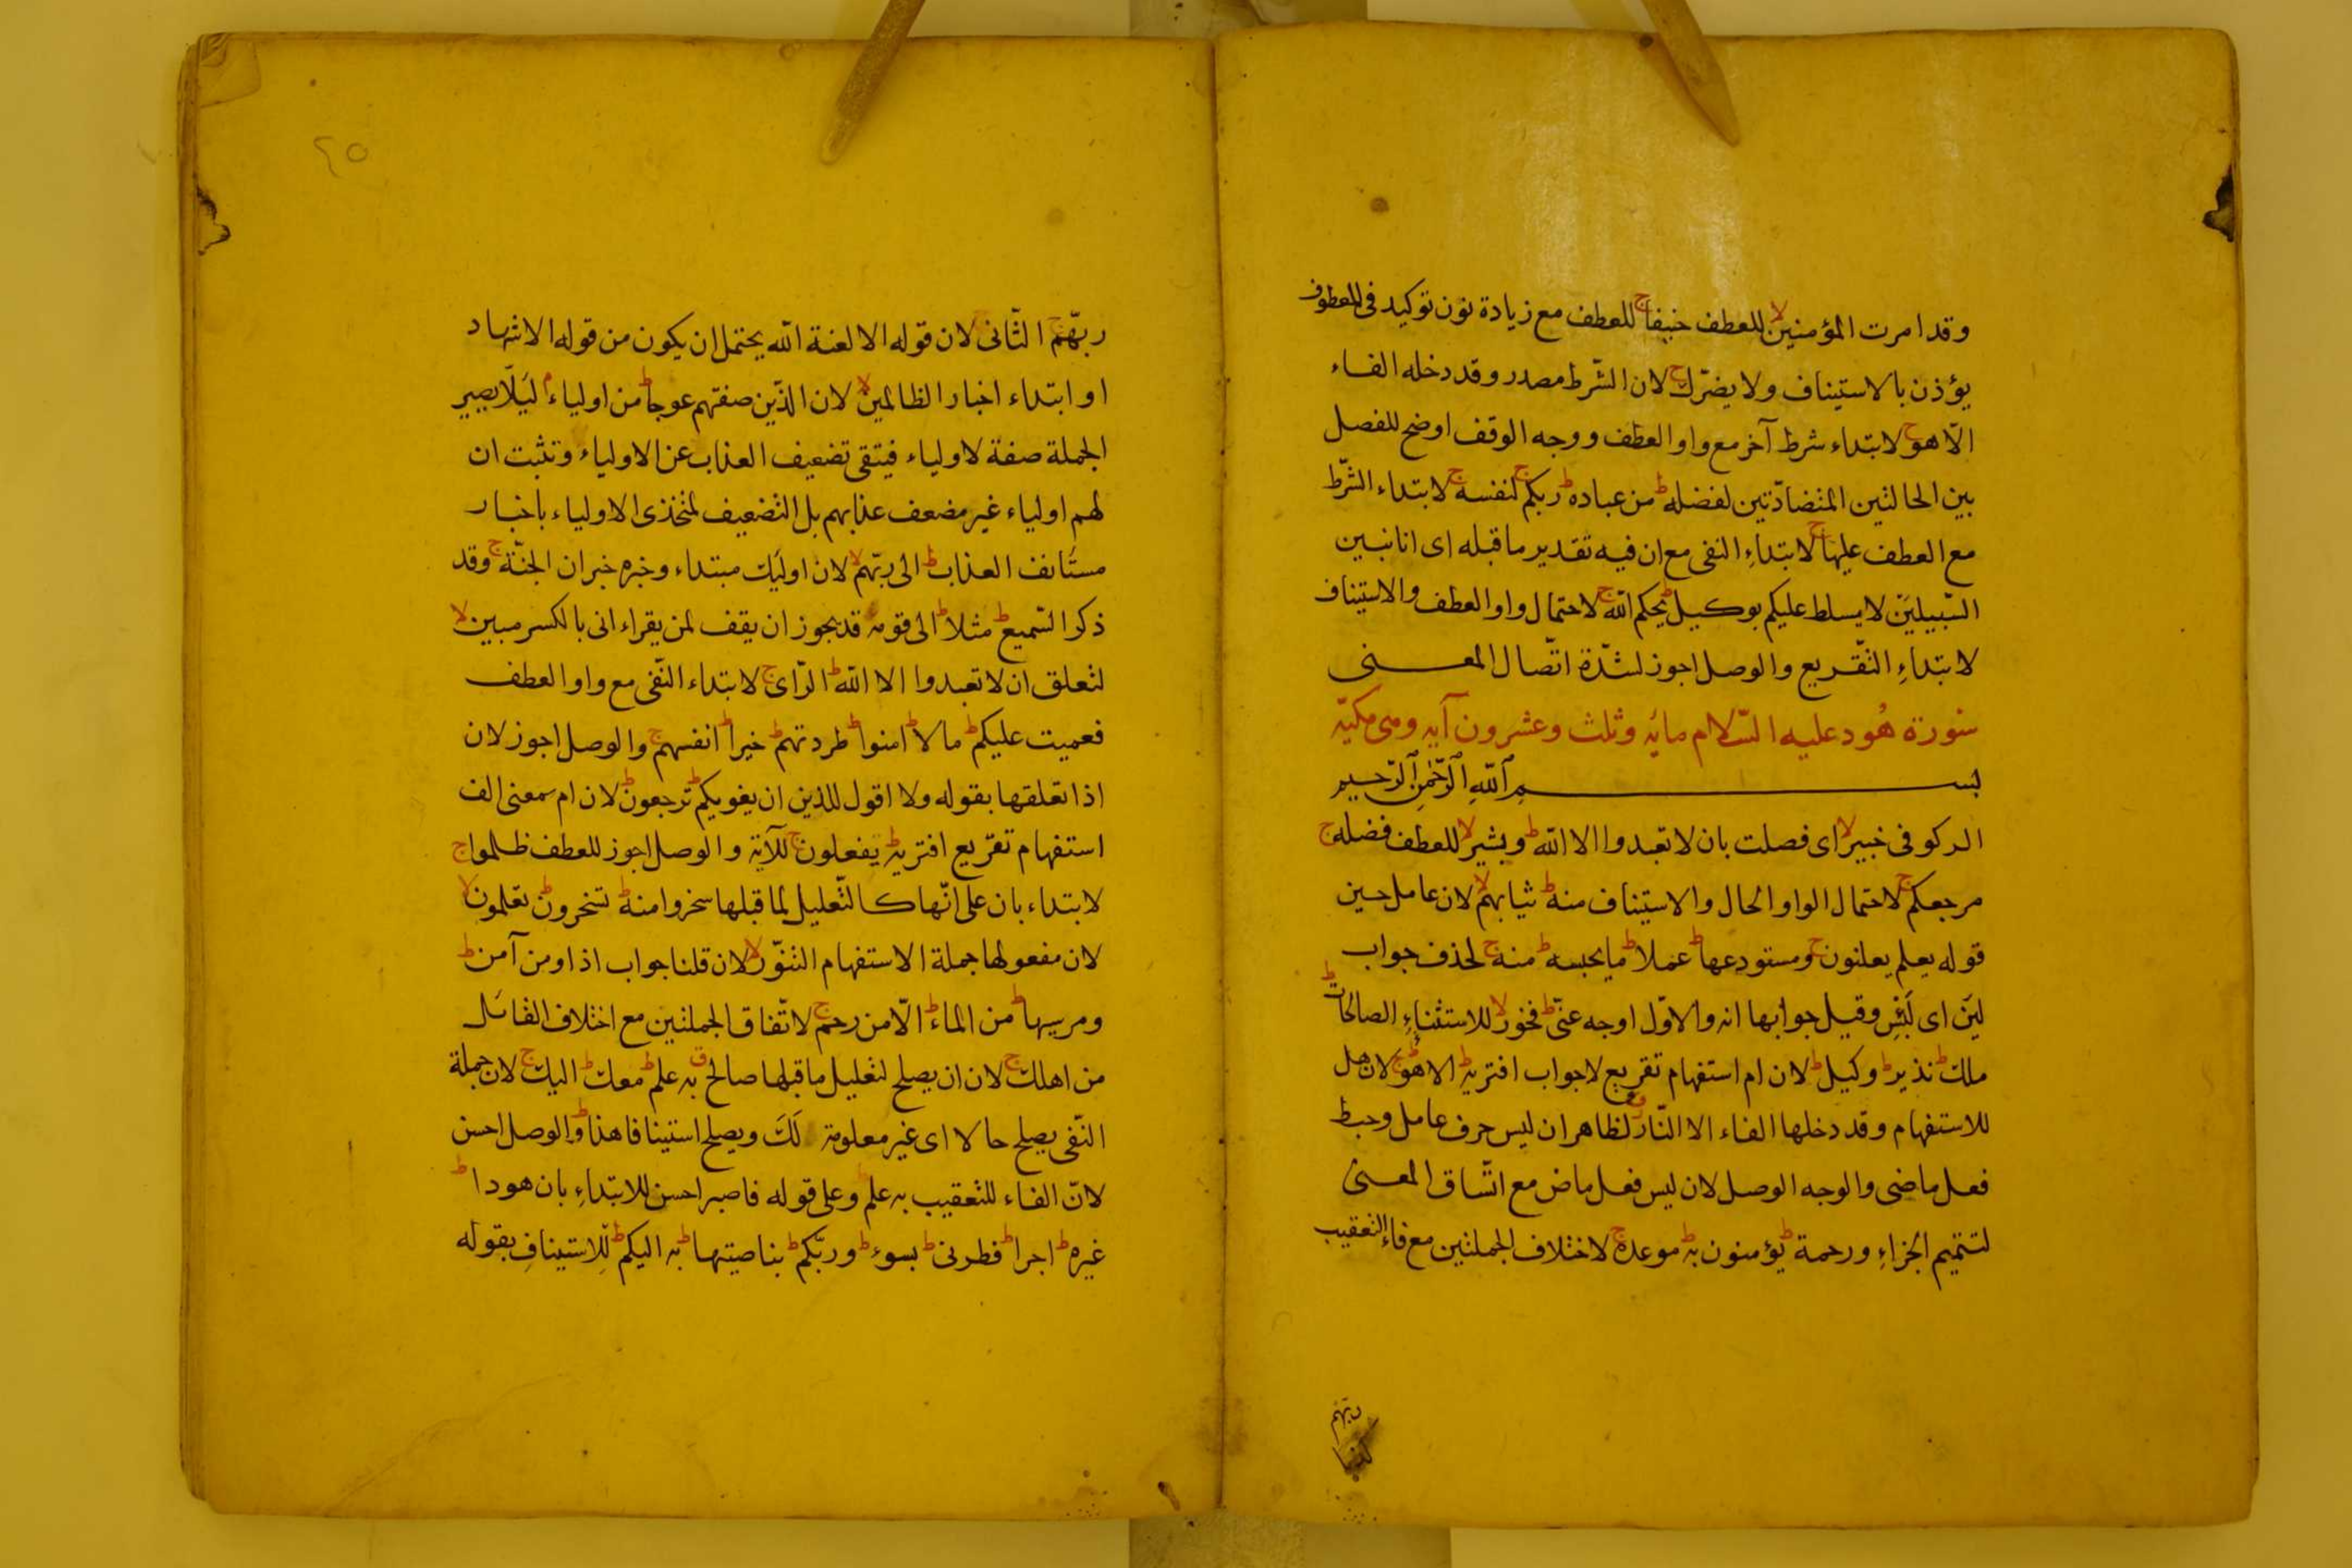 وقد امرت المؤمنين لا للعطف حنيفا ج للعطف مع زيادة نون توكيد فى المعطوف
يؤذن بالاستيناف ولا يضرّك ج لان الشّرط مصدر وقد دخله الفاء
الّا هو ج لابتداء شرط آخر مع واو العطف ووجه الوقف اوضح للفصل
بين الحالتين المتضادّتين لفضله ط من عباده ط ربكم ج لنفسه ج لابتداء الشّرط
مع العطف عليها ج لابتداءِ النفى مع ان فيه تقدير ما قبله اى انا نبين
السّبيلين لا يسلط عليكم بوكيل ط يحكم الله ج لاحتمال واو العطف والاستيناف
لابتداءِ التّقريع والوصل اجوز لشدّة اتّصال المعنى
سورة هُود عليه السّلام مائه وثلث وعشرون آيه وهى مكيّه
بسم الله الرّحمن الرّحيم
الر كوفى خبير لا اى فصلت بان لا تعبدوا الا الله ط وبشير لا للعطف فضله ج
مرجعكم ج لاحتمال الواو الحال والاستيناف منه ط ثيابهم لا لان عامل حين
قوله يعلم يعلنون ج ومستودعها ط عملا ط ما يحبسه ط منه ج لحذف جواب
لين اى لَئِن وقيل جوابها انه والاوّل اوجه عنّى ط فخور لا للاستثناءِ الصالحات ط
ملك ط نذير ط وكيل ط لان ام استفهام تقريع لا جواب افتريه ط الا هو ج لان هل
للاستفهام وقد دخلها الفاء الا النّار لظاهر ان ليس حرف عامل وحبط
فعل ماضى والوجه الوصل لان ليس فعل ماض مع اتّساق المعنى
لتتميم الجزاءِ ورحمة ط يؤمنون به ط موعده ج لاختلاف الجملتين مع فاءِ التعقيب
ربهم
٢٥
ربّهم ج الثّانى لان قوله الا لعنة الله يحتمل ان يكون من قوله الاشهاد
او ابتداء اخبار الظالمين لا لان الذّين صفتهم عوجا ط من اولياء م ليَلّا يصير
الجملة صفة لاولياء فيتقى تضعيف العذاب عن الاولياء وتثبت ان
لهم اولياء غير مضعف عذابهم بل التضعيف لمتخذى الاولياء باخبار
مستأنف العذاب ط الى ربّهم لا لان اوليك مبتداء وخبره خبر ان الجنّة ج وقد
ذكر السّميع ط مثلا ط الى قومه قد يجوز ان يقف لمن يقراء انى بالكسر مبين لا
لتعلق ان لا تعبدوا الا الله ط الرّاى ج لابتداء النّفى مع واو العطف
فعميت عليكم ط مالا ط امنوا ط طردتهم ط خيرا ط انفسهم ج والوصل اجوز لان
اذا تعلقها بقوله ولا اقول للذين ان يغويكم ط ترجعون ط لان ام بمعنى الف
استفهام تقرّيع افتريه ط يفعلون ج للآية والوصل اجوز للعطف ظلموا ج
لابتداء بان على انّها كالتّعليل لما قبلها سخروا منه ط تسخرون ط تعلمون لا
لان مفعولها جملة الاستفهام التنّور لا لان قلنا جواب اذا ومن آمن ط
ومرسيها ط من الماء ط الّا من رحم ج لاتّفاق الجملتين مع اختلاف القائل
من اهلك ج لان ان يصلح لتعليل ما قبلها صالح ق به علم ط معك ط اليك ج لان جملة
النّفى يصلح حالا اى غير معلومة لَكَ ويصلح استينافا هذا ط والوصل احسن
لانّ الفاء للتعقيب به علم وعلى قوله فاصبر احسن للابتداءِ بان هودا ط
غيره ط اجرا ط فطرنى ط بسوء ط وربّكم ط بناصيتها ط به اليكم ط للاستينافِ بقوله